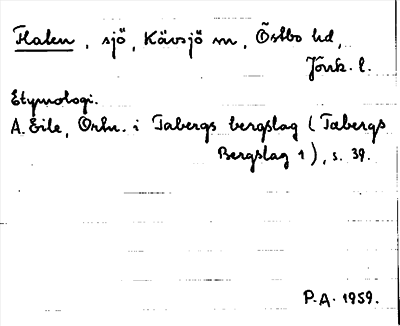 Flaten, sjö, Kävsjö sn, Östbo hd,
Jönk. l.
Etymologi.
A. Eile, Ortn. i Tabergs bergslag (Tabergs
Bergslag 1), s. 39.
P.A. 1959.